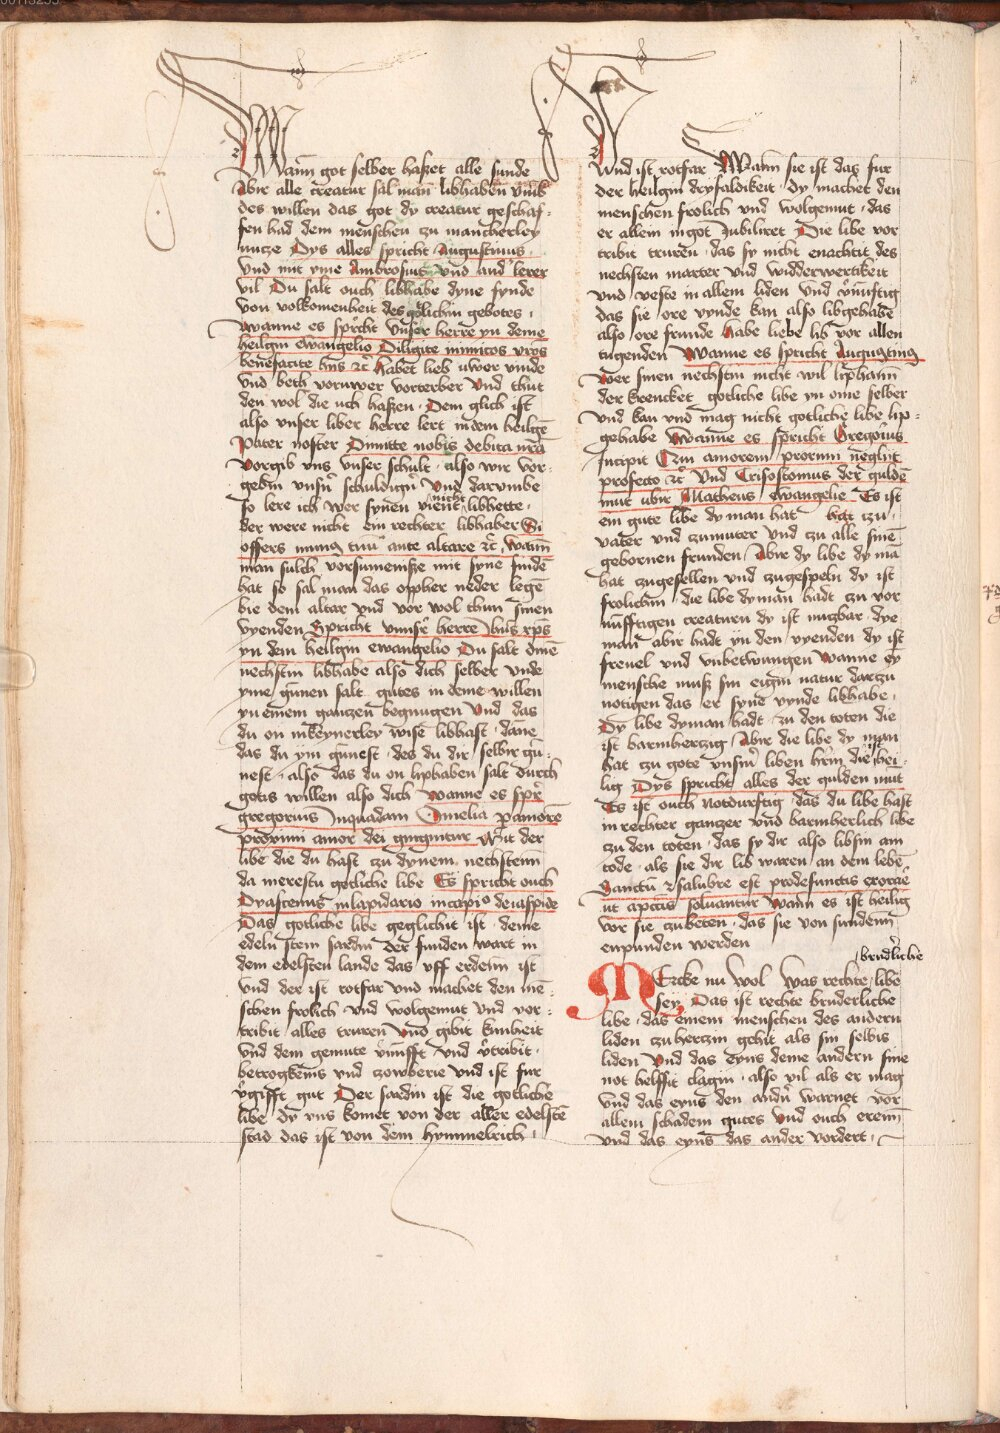 Wann got selber hasset alle sunde
Abir alle creatur sal man libhaben vmb
des willen das got dy creatur geschaf-
fen had dem menschen zu mancherley
nucze Dys alles spricht Augustinus
Vnd mit yme Ambrosius vnd and' lerer
vil Du salt ouch libhabe dyne fynde
von volkomenheit des gotlichin gebotes
Wanne es spricht vnser herre yn deme
heilgin ewangelio Diligite inimicos vros
benefacite hiis etc habet lieb uwer vinde
vnd beth vor uwer vorterber vnd thut
den wol die uch hassen Dem glich ist
also vnser liber herre lert in dem heilge
Pater noster Dimitte nobis debita nra
Vorgib vns vnser schult also wir vor-
gebin vnsn schuldign Vnd darumbe
so lere ich wer synen vient nicht libhette
der were nicht ein rechter libhaber Si
offers munus tuu ante altare etc Wann
man sulch vorsumenisse mit syne finde
hat so sal man das oppher neder lege
bie dem altar vnd vor wol thun sinen
vyenden Spricht vnnser herre ihus xps
yn dem heilgin ewangelio Du salt dine
nechstin libhabe also dich selber vnde
yme gunen salt gutes in deme willen
yn einem ganczen begnugen Vnd das
du on in keynerley wise libhast dane
das du ym gunest des du dir selbir gu-
nest also das du on liphaben salt durch
gotis willen also dich Wanne es spr
gregorius in quadam Omelia p amore
proximi amor dei gingnitur Mit der
libe die du hast zu dynem nechstenn
da merestu gotliche libe Es spricht ouch
Dyascenus in lapidario in capio de iaspide
Das gotliche libe geglichit ist deme
edeln stein sardin der funden wart in
dem edelsten lande das vff erdenn ist
vnd der ist rotfar vnd machet den me-
schen frolich vnd wolgemut vnd vor-
tribit alles truren vnd gibit kunheit
vnd dem gemute vnufft vnd vtribit
betrogkenis vnd zowberie vnd ist fur
vgifft gut Der sardin ist die gotliche
libe dy vns komet von der aller edelste
stad das ist von dem hymmelrich
Vnd ist rotfar Wann sie ist das fur
der heilgin dryfaldikeit dy machet den
menschen frolich vnd wolgemut das
er allein in got Jubiliret Die libe vor
tribit truren das sy nicht enachtit des
nechsten marter vnd widderwertikeit
vnd veste in allem liden vnd vnuftig
das sie ore vynde kan also libgehabe
also ore frunde habe liebe lib vor allen
tugenden Wanne es spricht Augustinus
Wer sinen nechstin nicht wil liphann
der krencket gotliche libe yn ome selber
vnd kan vnd mag nicht gotliche libe lip-
gehabe Wanne es spricht Gregorius
Incipit Cum amorem proximi neglit
profecto etc Vnd Crisostomus der gulde
mut ubir Matheus ewangelie Es ist
ein gute libe dy man hat hat czu
vater vnd zumuter vnd czu alle sine
gebornen frunden Abir dy libe dy ma
hat zugesellen vnd zugespeln dy ist
frolichin die libe dyman hadt zu vor
nufftigen creaturn dy ist nuczbar dye
man abir hadt yn den vyenden dy ist
freuel vnd vnbetwungen Wanne ey
mensche muss sin eigin natur darzu
notigen das er syne vynde libhabe
Dy libe dyman hadt zu den toten die
ist barmherczig Abir die libe dy man
hat zu gote vnsm liben hrin die ist hei-
lig Dys spricht alles der gulden mut
Es ist ouch notdurftig das du libe hast
in rechter ganczer vnd barmherlich libe
zu den toten das sy dir also libsin am
tode als sie dir lib waren an dem lebe
Sanctu et salubre est pro defunctis exorae
ut a pctis soluantur Wann es ist heilig
vor sie zubeten das sie von sundenn
enpunden werden
brudliche
Mercke nu wol was rechte libe
sey Das ist rechte bruderliche
libe das einem menschen des andern
liden zu herczin gehit als sin selbis
liden Vnd das eyns deme andern sine
not helffit clagin also vil als er mag
vnd das eyns den andn warnet vor
allem schadem gutes vnd ouch erenn
vnd das eyns das ander vordert